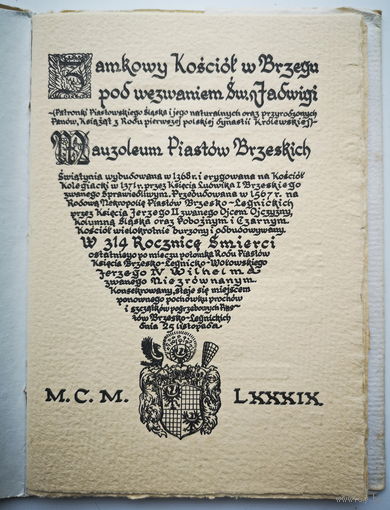 Zamkowy Kościół w Brzegu
pod wezwaniem Św. Jadwigi
(Patronki Piastowskiego Śląska i jego naturalnych oraz przyrodzonych
Panów, Książąt z Rodu pierwszej polskiej dynastii Królewskiej)
Mauzoleum Piastów Brzeskich
Świątynia wybudowana w 1368 r. i erygowana na Kościół
Kolegiacki w 1371 r. przez Księcia Ludwika I Brzeskiego
zwanego Sprawiedliwym. Przebudowana w 1567 r. na
Rodową Nekropolię Piastów Brzesko-Legnickich
przez Księcia Jerzego II zwanego Ojcem Ojczyzny,
Kolumną Śląska oraz Pobożnym i Czarnym.
Kościół wielokrotnie burzony i odbudowywany.
W 314 Rocznicę Śmierci
ostatniego po mieczu potomka Rodu Piastów
Księcia Brzesko-Legnicko-Wołowskiego
Jerzego IV Wilhelma
zwanego Niezrównanym.
Konsekrowany, staje się miejscem
ponownego pochówku prochów
i szczątków pogrzebowych Pias-
tów Brzesko-Legnickich
dnia 25 listopada
M.C.M. LXXXIX